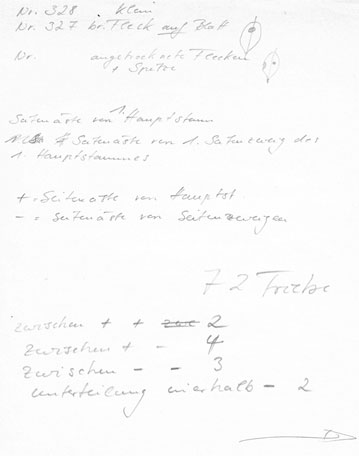 Nr. 328 . Klein
Nr. 327 br. Fleck auf Blatt
Nr. angetrocknete Flecken
+ Spitze
Seitenäste von 1. Hauptstamm
Seitenäste von 1. Seitenzweig des
1. Hauptstammes
+ = Seitenäste von Hauptst.
- = Seitenäste von Seitenzweigen
72 Triebe
zwischen + + 2
zwischen + - 4
zwischen - - 3
Unterteilung innerhalb - 2